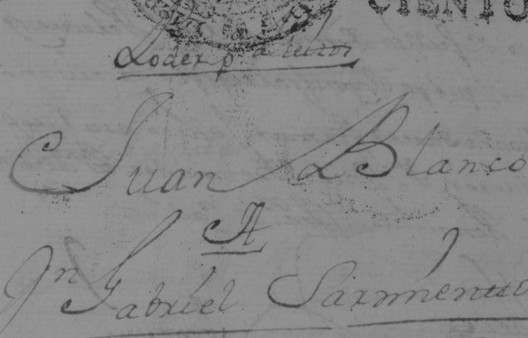 CIENTO
Poder pª
Juan Blanco
A
Jn Gabriel Sarmiento